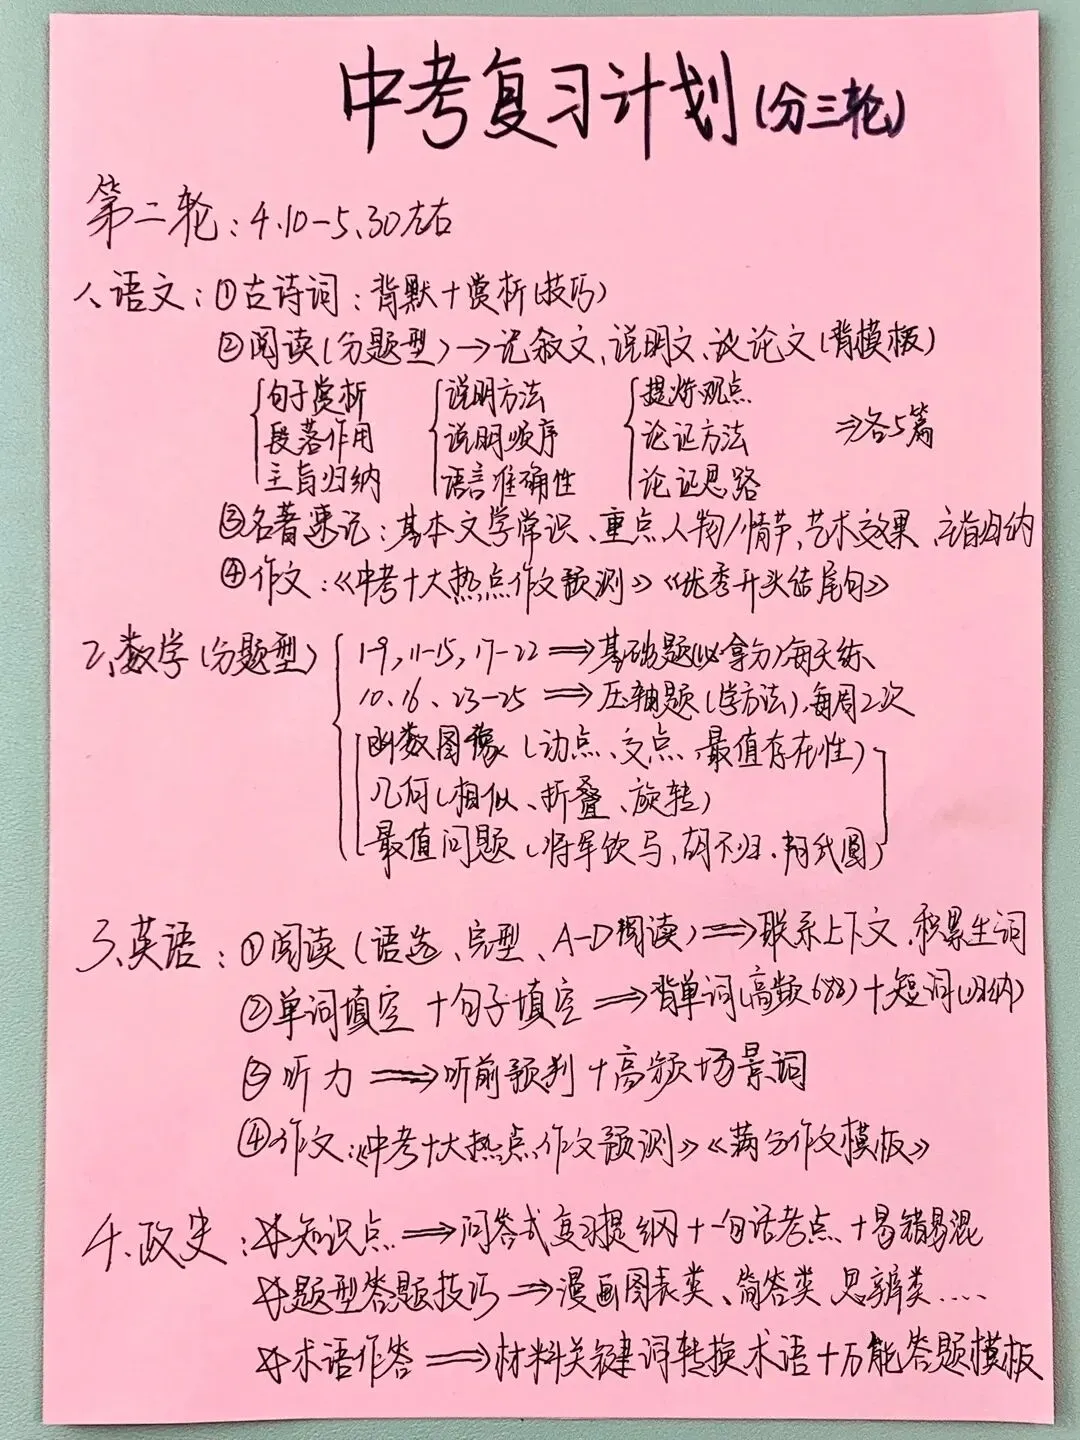 中考复习计划(分三轮)
第二轮:4.10-5.30左右
1、语文:①古诗词:背默+赏析(技巧)
②阅读(分题型)→记叙文、说明文、议论文(背模板)
句子赏析 说明方法 提炼观点
段落作用 说明顺序 论证方法 ⇒各5篇
主旨归纳 语言准确性 论证思路
③名著速记:基本文学常识、重点人物/情节,艺术效果、主旨归纳
④作文:《中考十大热点作文预测》《优秀开头结尾句》
2、数学(分题型) 1-9,11-15,17-22⇒基础题(必拿分)每天练、
10、16、23-25⇒压轴题(学方法),每周2次
函数图像(动点、交点、最值存在性)
几何(相似、折叠、旋转)
最值问题(将军饮马,胡不归、阿氏圆)
3、英语:①阅读(语选、完型、A-D阅读)⇒联系上下文、积累生词
②单词填空+句子填空⇒背单词(高频688)+短词(归纳)
③听力⇒听前预判+高频场景词
④作文:《中考十大热点作文预测》《满分作文模板》
4、政史:☆知识点⇒问答式复习提纲+一句话考点+易错易混
☆题型答题技巧→漫画图表类、简答类、思辨类……
☆术语作答⇒材料关键词转换术语+万能答题模板